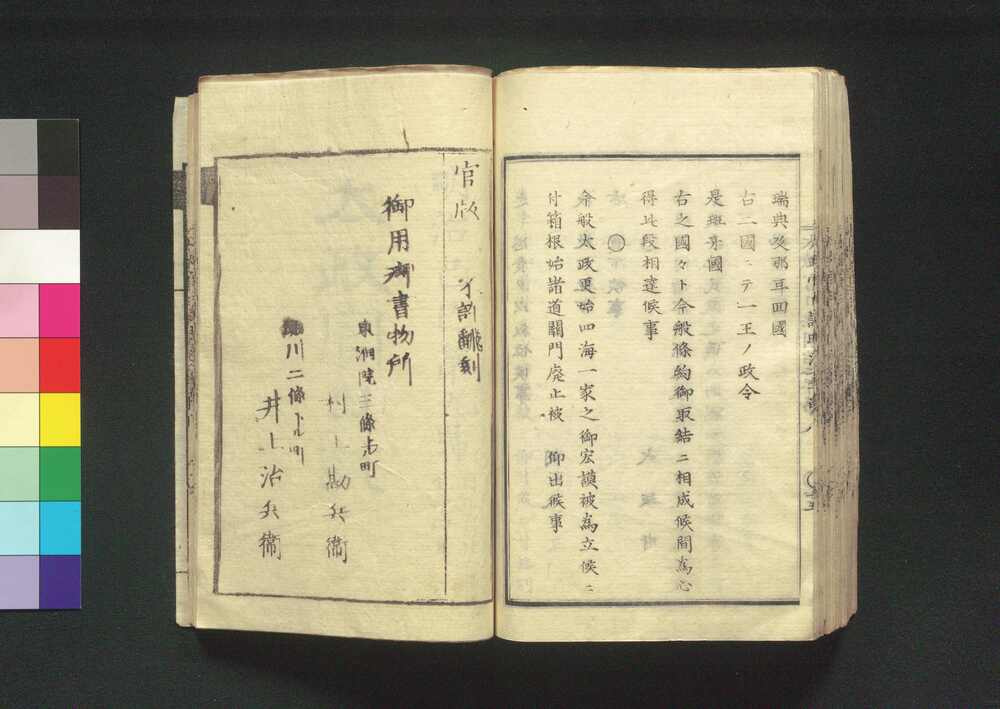 瑞典及那耳回國
右二國ニテ一王ノ政令
是班牙國
右之國々ト今般條約御取結ニ相成候間為心
得此段相達候事
今般大政更始四海一家之御宏謨被為立候ニ
付箱根始諸道關門廃止被 仰出候事
官版
不許翻刻
御用御書物所
東洞院三條上ル町
村上勘兵衛
堀川二條下ル町
井上治兵衛